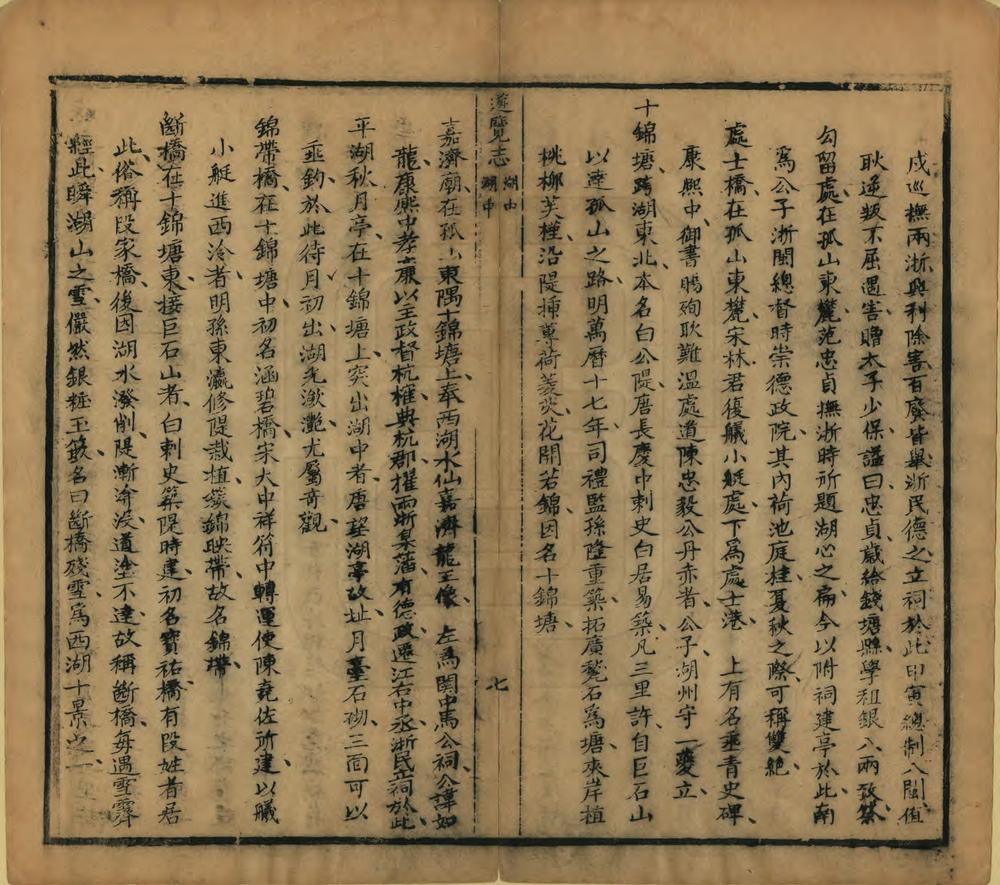 戍巡撫兩浙興利除害百廢皆舉浙民德之立祠於此印寅總制八閩值
耿逆叛不屈遇害贈太子少保諡曰忠貞歲給錢塘縣學租銀八兩致祭
勾留處在孤山東麓范忠貞撫浙時所題湖心之扁今以附祠建亭於此南
爲公子浙閩總督時崇德政院其內荷池庭桂夏秋之際可稱雙絶
處士橋在孤山東麓宋林君復艤小艇處下爲處士港 上有名垂青史碑
康熙中御書賜殉耿難溫處道陳忠毅公丹赤者公子湖州守一夔立
十錦塘跨湖東北本名白公隄唐長慶中刺史白居易築凡三里許自巨石山
以達孤山之路明萬曆十七年司禮監孫隆重築拓廣甃石爲塘夾岸植
桃柳芙槿沿隄插蓴荷菱芡花開若錦因名十錦塘
遊覽志 湖中 湖中 七
嘉濟廟在孤山東隅十錦塘上奉西湖水仙嘉濟龍王像 左爲関中馬公祠公諱如
龍康熙中孝廉以王政督杭榷典杭郡擢兩浙臬藩有德政遷江右中丞浙民立祠於此
平湖秋月亭在十錦塘上突出湖中者唐望湖亭故址月臺石砌三面可以
垂釣於此待月初出湖光瀲灧尤屬奇觀
錦帶橋在十錦塘中初名涵碧橋宋大中祥符中轉運使陳堯佐所建以艤
小艇進西泠者明孫東瀛修隄栽植簇錦映帶故名錦帶
斷橋在十錦塘東接巨石山者白刺史築隄時建初名寶祐橋有段姓者居
此俗稱段家橋後因湖水潑削隄漸淪没道塗不達故稱斷橋每遇雪霽
經此瞬湖山之雪儼然銀粧玉飾名曰斷橋殘雪爲西湖十景之一